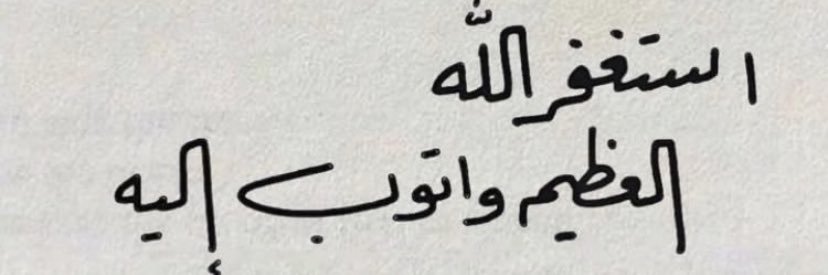 استغفر الله
العظيم واتوب إليه